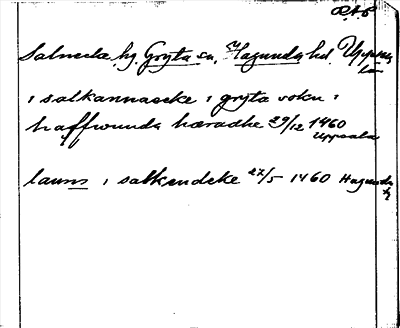 RAP
Salnecke hg. Gryta sn. Hagunda hd. Uppsala
län
i salkannaecke i gryta sokn i
haffwunda hæradhe 29/12 1460
Uppsala
laurens i salkendeke 27/5 1460 Hagunda